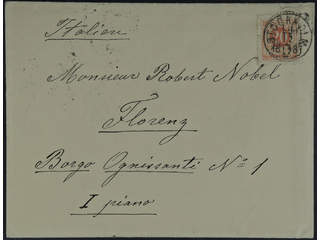 Italien
Monsieur Robert Nobel
Florenz
Borgo Ognissanti No 1
I piano